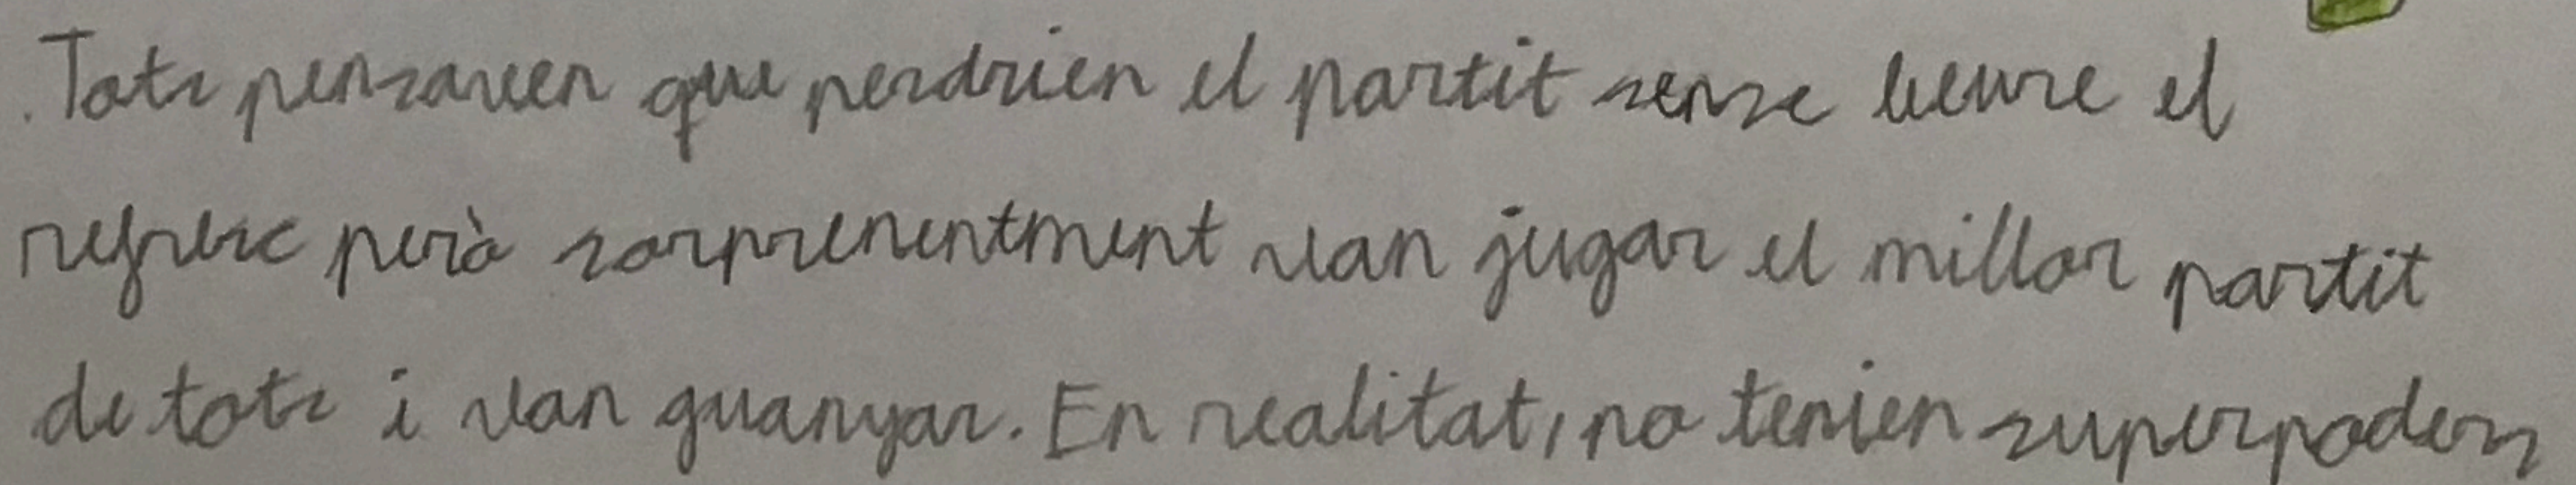 Tots pensaven que perdrien el partit sense beure el
refresc però sorprenentment van jugar el millor partit
de tots i van guanyar. En realitat, no tenien superpoders